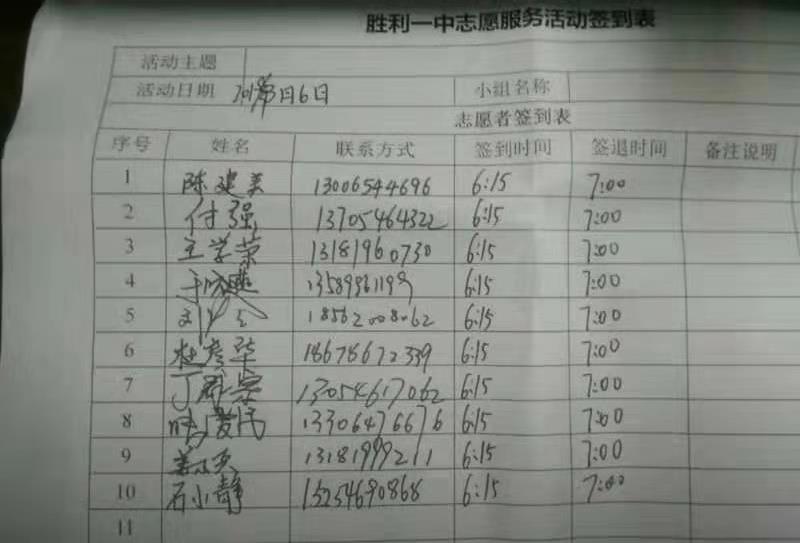 胜利一中志愿服务活动签到表
活动主题
活动日期 月6日 小组名称
志愿者签到表
序号 姓名 联系方式 签到时间 签退时间 备注说明
1 陈建美 13006544696 6:15 7:00
2 付强 13705464322 6:15 7:00
3 王学荣 13181960730 6:15 7:00
4 于 6:15 7:00
5 刘 18562008062 6:15 7:00
6 杜彦华 18678672339 6:15 7:00
7 丁 13054617062 6:15 7:00
8 13306476676 6:15 7:00
9 姜 13181999211 6:15 7:00
10 石小静 13254690868 6:15 7:00
11